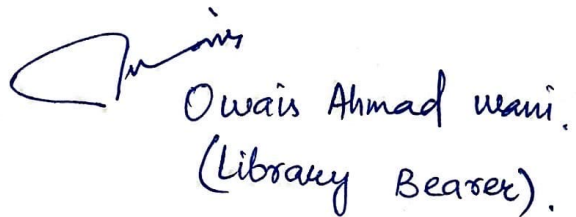 Owais
Owais Ahmad wani.
(Library Bearer).